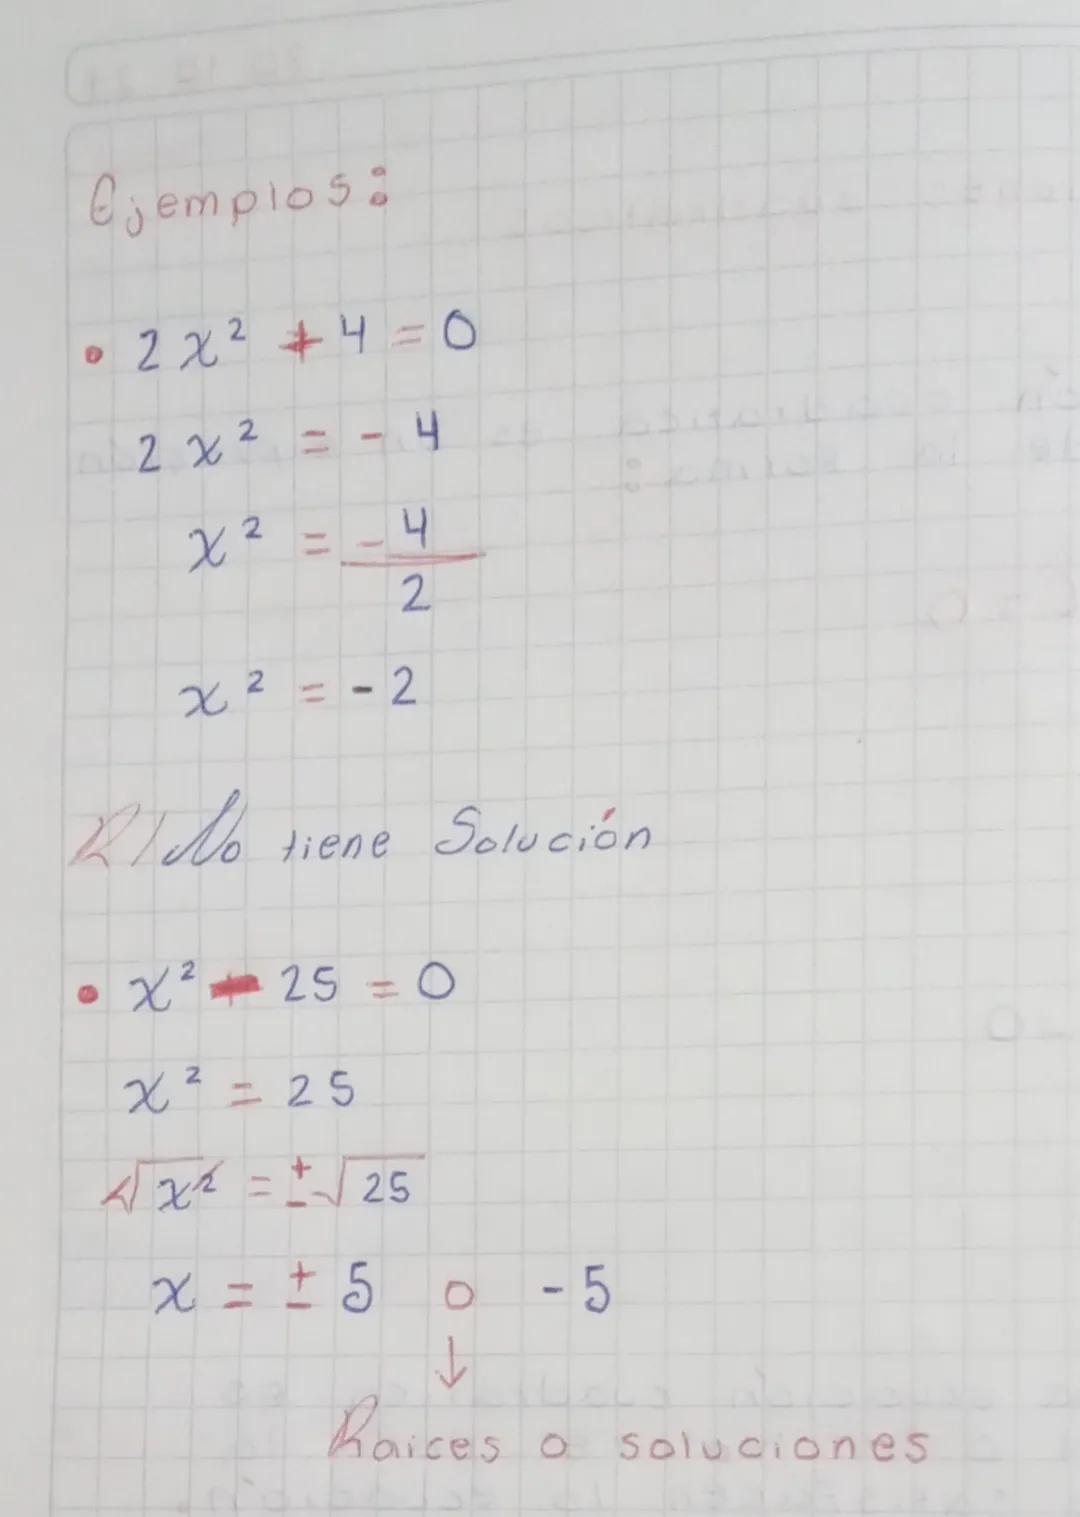 Ejemplos:
• 2x² + 4 = 0
2x² = - 4
x² = - 4
2
x² = - 2
R/ No tiene Solución
• x² - 25 = 0
x² = 25
√x² = ± √25
x = ± 5 o - 5
↓
Raices o soluciones